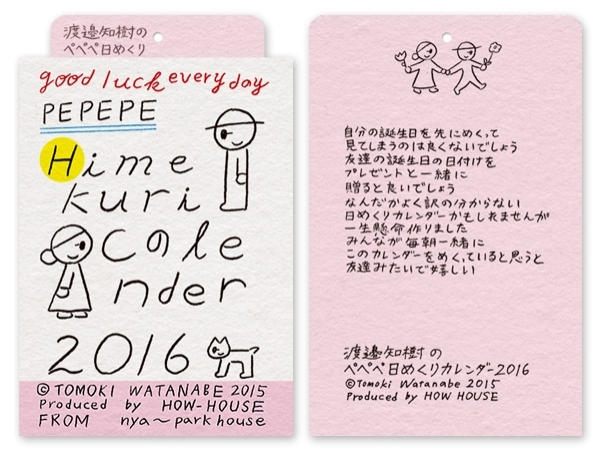 渡邉知樹の
ペペペ日めくり
good luck everyday
PEPEPE
Hime
kuri
Cale
nder
2016
©TOMOKI WATANABE 2015
Produced by HOW-HOUSE
FROM nya〜park house
自分の誕生日を先にめくって
見てしまうのは良くないでしょう
友達の誕生日の日付けを
プレゼントと一緒に
贈ると良いでしょう
なんだかよく訳の分からない
日めくりカレンダーかもしれませんが
一生懸命作りました
みんなが毎朝一緒に
このカレンダーをめくっていると思うと
友達みたいで嬉しい
渡邉知樹の
ペペペ日めくりカレンダー2016
©Tomoki Watanabe 2015
Produced by HOW HOUSE